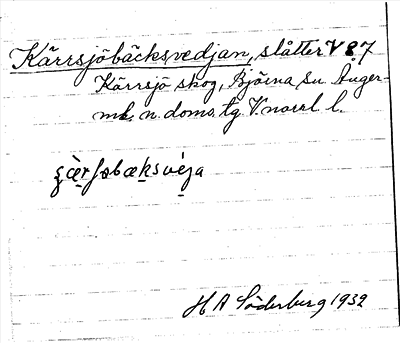 Kärrsjöbäcksvedjan, slåtter V 87
Kärrsjö skog, Björna sn Ånger-
ml. n. doms. tg. V. norrl l.
H A Söderberg 1932